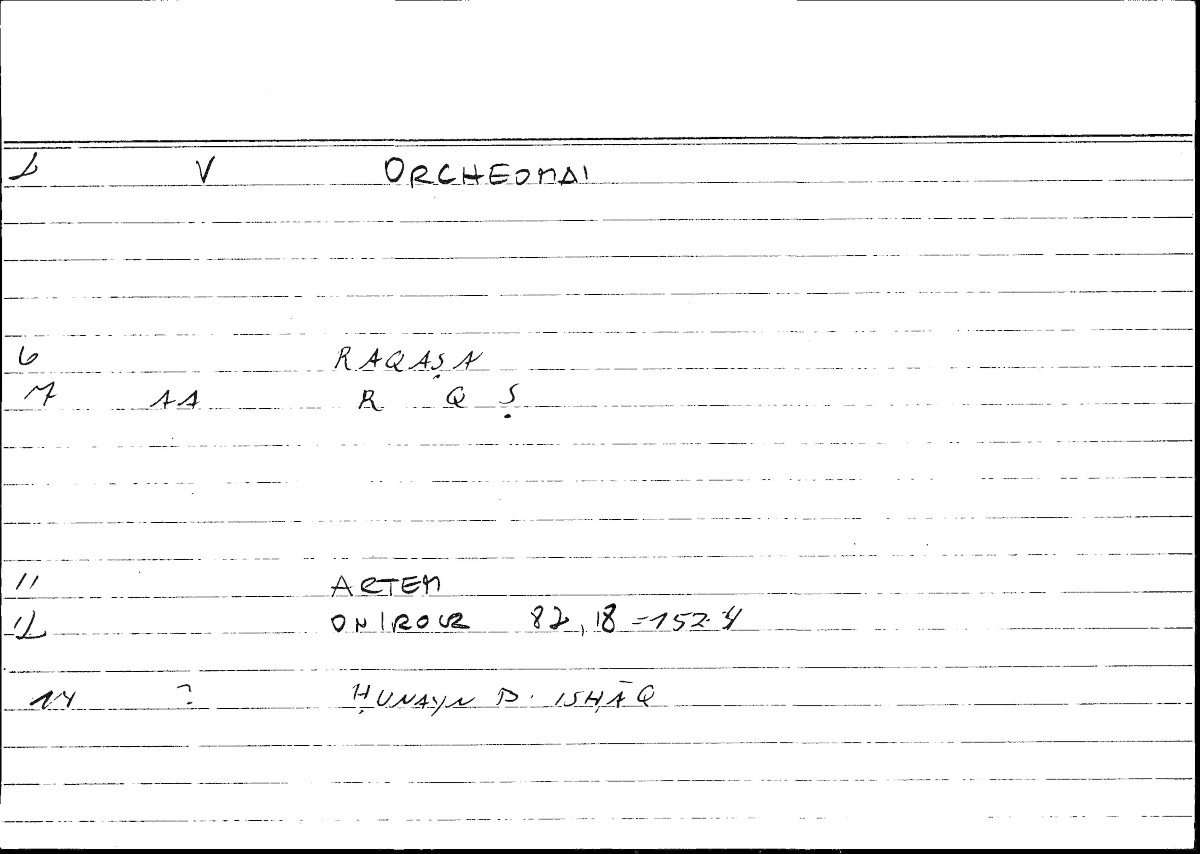 2 V ORCHEOMAI
6 RAQAṢA
7 AA R Q Ṣ
11 ARTEM
12 ONIROCR 82,18 = 152.4
14 ? ḤUNAYN B. ISḤĀQ